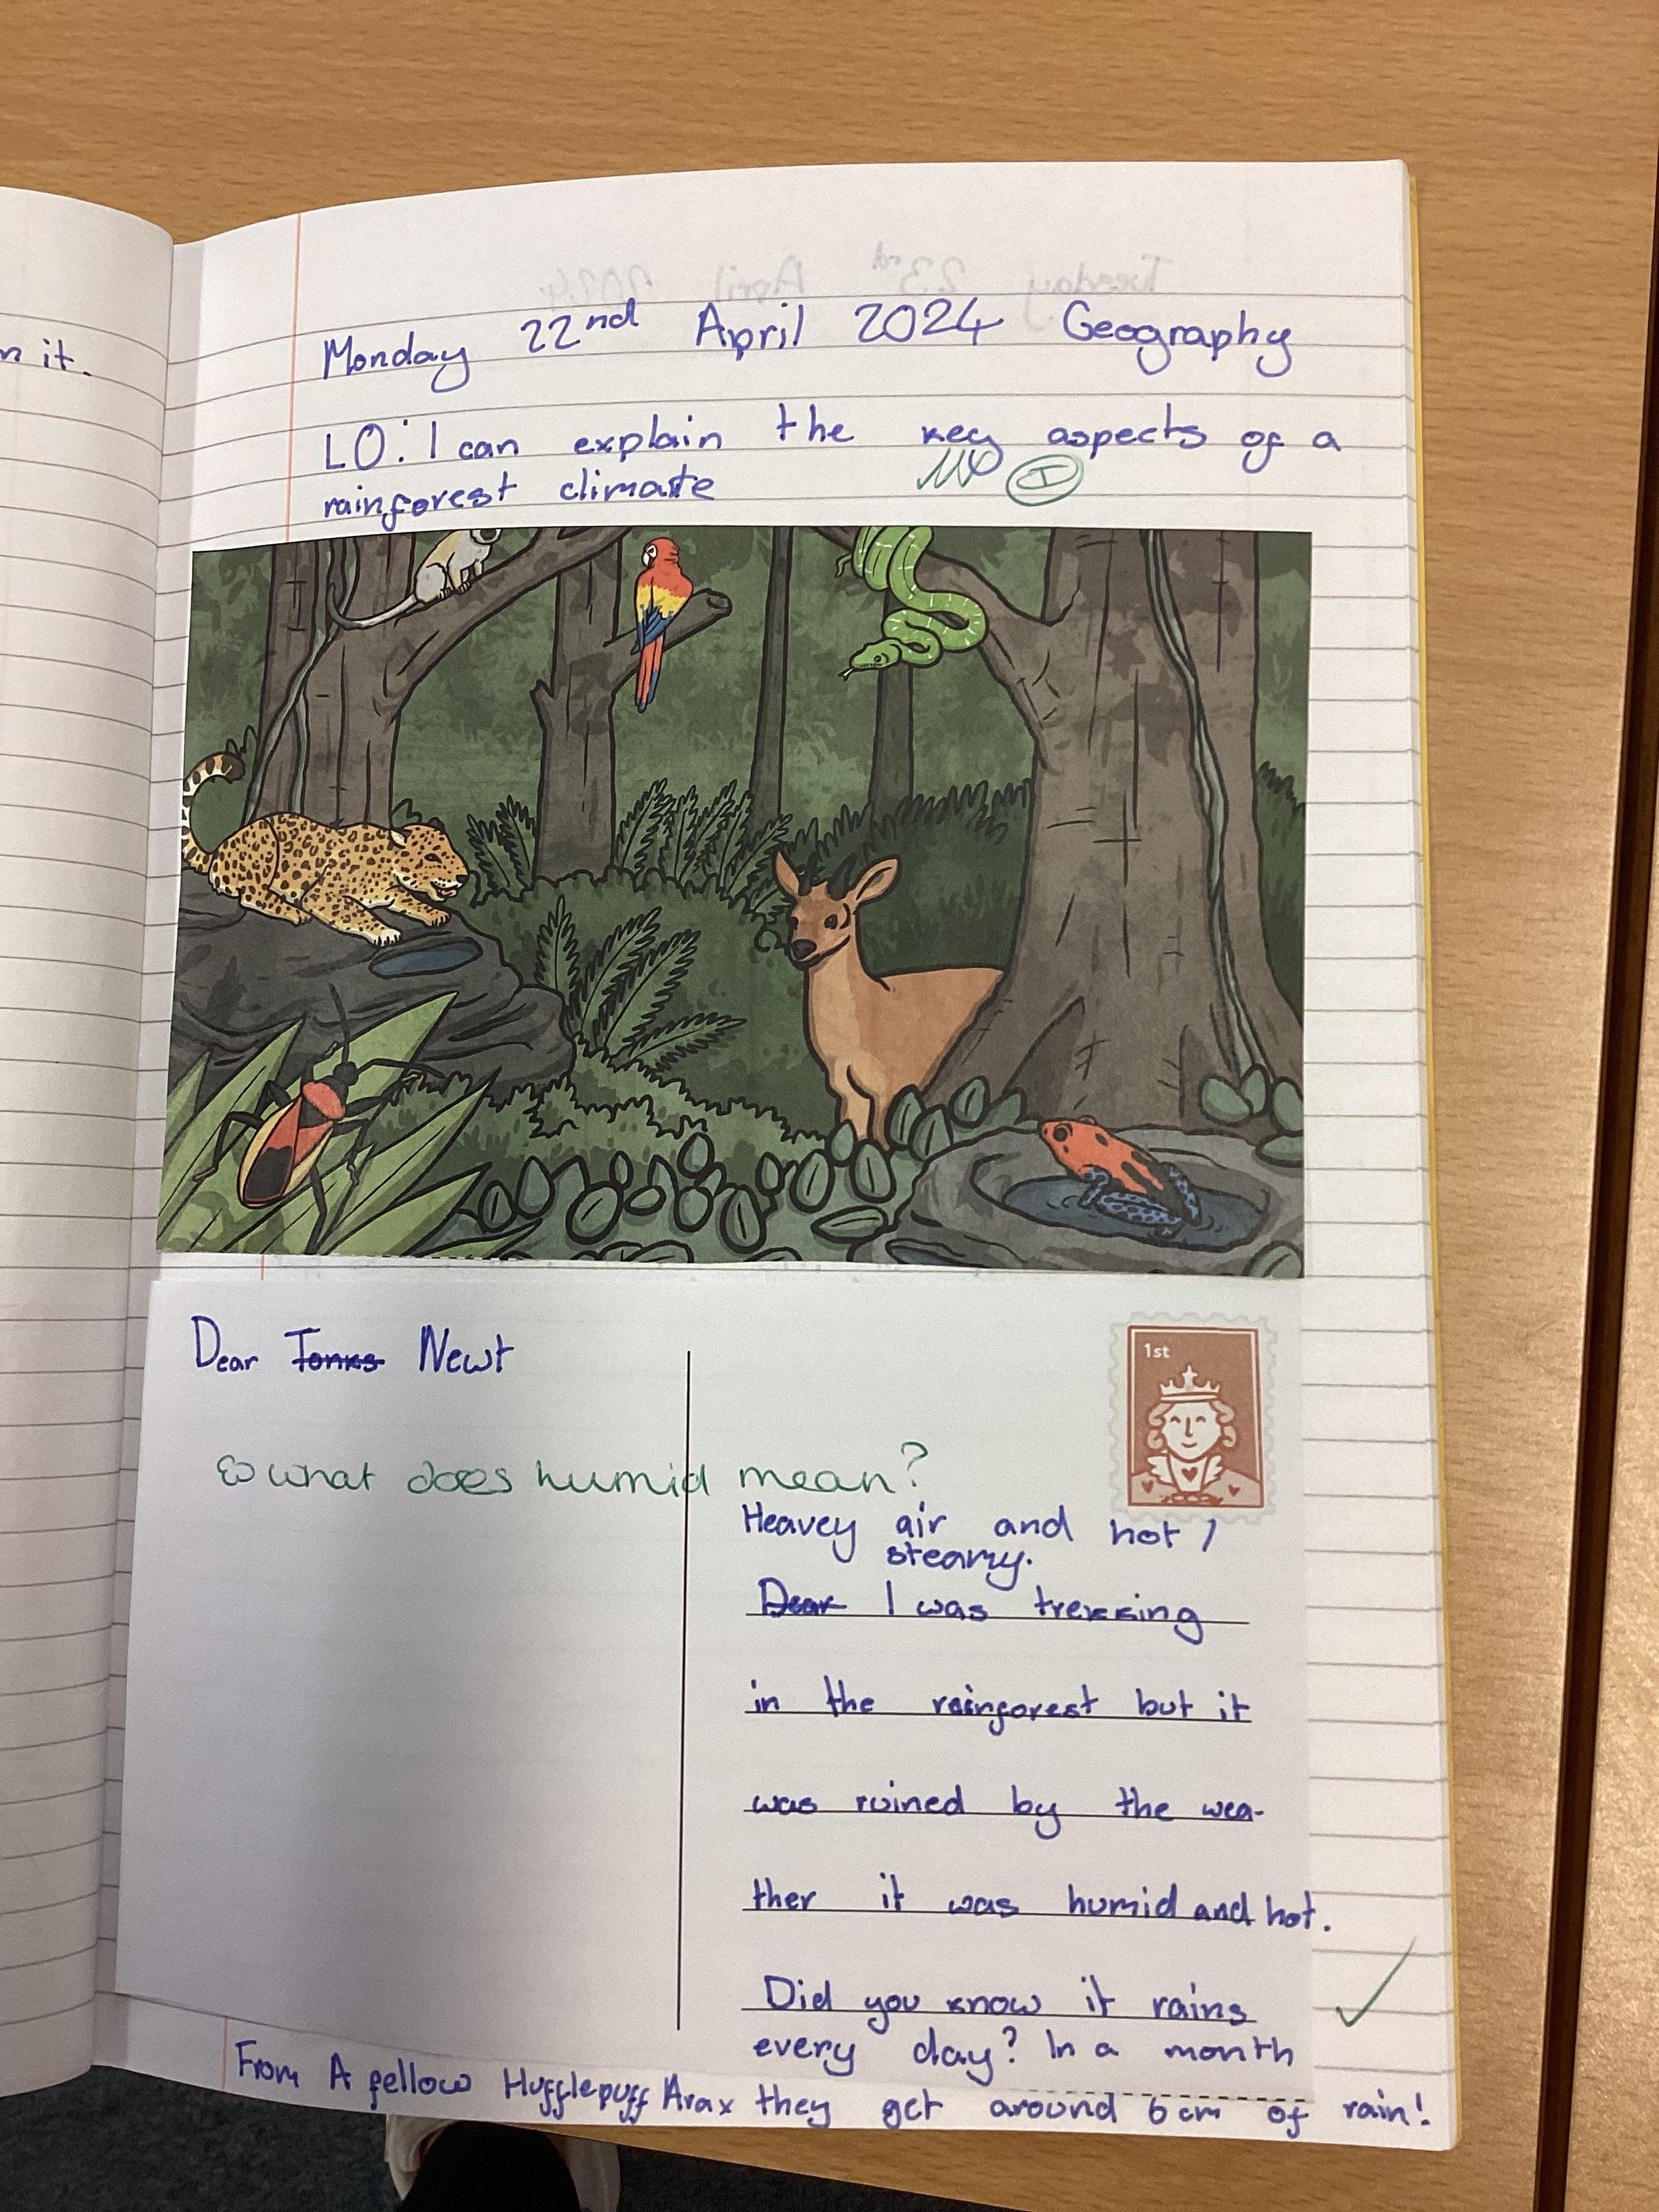 n it.
Tuesday 23rd April 2024
Monday 22nd April 2024 Geography
LO: I can explain the key aspects of a
rainforest climate
I
Dear Tonks Newt
1st
what does humid mean?
Heavey air and hot /
steamy.
Dear I was trekking
in the rainforest but it
was ruined by the wea-
ther it was humid and hot.
Did you know it rains
every day? In a month
they get around 6cm of rain!
From A fellow Hufflepuff Arax